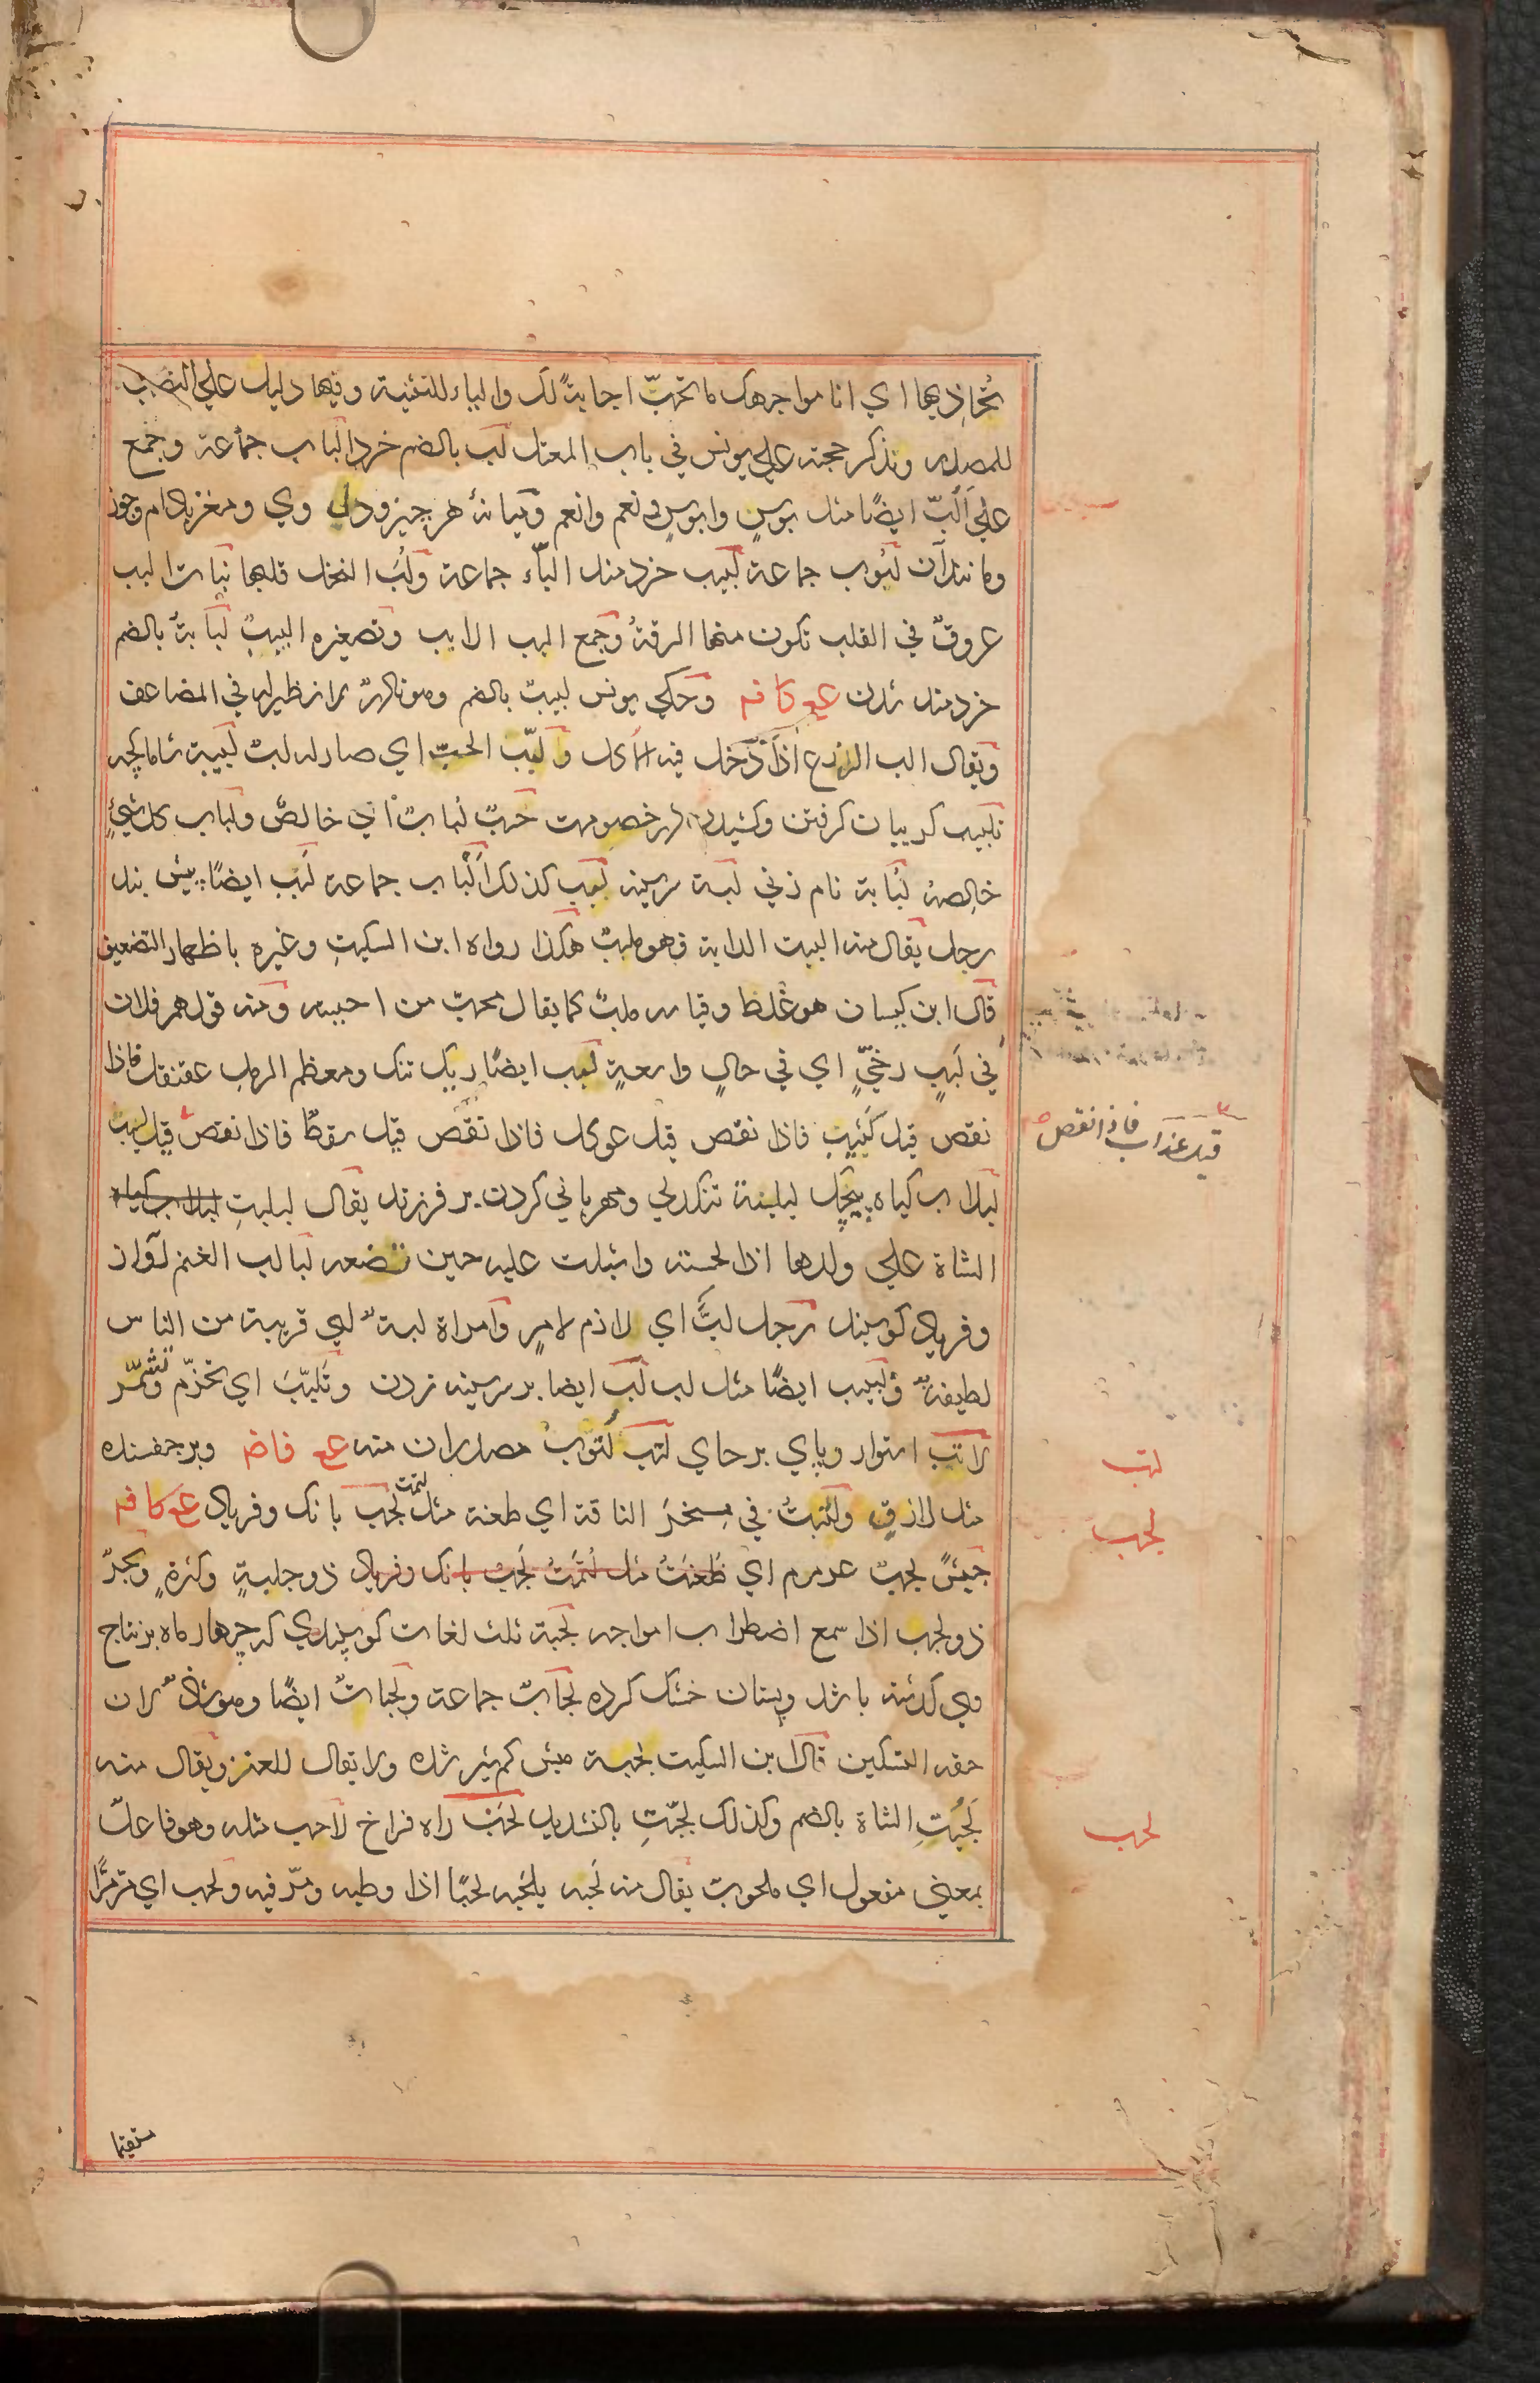 تُحاذيها اي انا مواجهك بما تحبّ اجابةً لك والياء للتثنية وفيها دليل علي النصب
للمصدر ونذكر حجته علي يونس في باب المعتل لب بالضم خرد الباب جماعة وجمع
علي اَلُبّ ايضًا مثل بوسٍ وابوسٍ و نعم وانعم وميانهٔ هر چيز و دل وي ومغز بادام وجوز
ومانند آن لبوب جماعة لبيب خردمند البّاء جماعة ولُبّ النخل قلبها نبات البب
عروقٌ في القلب تكون منها الرقةُ وجمع البب الابب وتصغيره البيبٌ لبابةٌ بالضم
خردمند شدن ع كا ف وحكي يونس لببت بالضم وهو نادرٌ لا نظير له في المضاعف
ويقال الب الزرع اذا دخل فيه الاكل ولبّب الحبّ اي صار له لبٌ لبيبة شاماكچه
تلبيب كريبان كرفتن وكشيدن در خصومت حَبٌ لبابٌ اي خالصٌ ولباب كل شيءٍ
خالصه لُبابة نام زني لبة سرسينه لبب كذلك اَلْباب جماعة لبب ايضًا پيش بند
رجل يقال منه البيت الدابة فهو ملبب هكذا رواه ابن السكيت وغيره باظهار التضعيف
قال ابن كيسان هو غلط وقياسه ملبٌ كما يقال محبٌ من احببته ومنه قولهم فلان
في لَببٍ رخيٍّ اي في حالٍ واسعةٍ لبب ايضًا ريك تنك ومعظم الرمل عقنقل فاذا
نقص قيل كثيب فاذا نقص قيل عوكل فاذا نقص قيل سقط فاذا نقص قيل لبب
قيل عذاب فاذا نقص
لبلاب كياه پيچك لبلبة تنكدلي ومهرباني كردن بر فرزند يقال لبلبتِ لبلاب كياه
الشاة علي ولدها اذا لحسته واشبلت عليه حين تضعه لبالب الغنم آواز
وفرياد كوسپند رجل لبٌّ اي لازم لامرٍ وامراة لبةٌ اي قريبة من الناس
لطيفةٌ ولبيب ايضًا مثل لب لَبّ ايضا بر سرسينه زدن وتلبّبَ اي تحزّم وتشمّر
لاتب استوار وپاي برجاي لتب لُتوبٌ مصدران منه ع ع فا ض وبرجفسنده
لتب
مثل لازق ولَتبتُ في منخر الناقة اي طعنة مثل لتمت لجب بانك وفرياد ع ع كا ف
لجب
جيشٌ لجبٌ عرمرم اي طَعنتُ مثل لتمت لجب بانك وفرياد ذو جلبةٍ وكثرةٍ وبحرٌ
ذو لجب اذا سمع اضطراب امواجه لجبة ثلث لغات كوسپندي كه چهار ماه بر نتاج
وي كذشته باشد وپستان خشك كرده لجابٌ جماعة ولجباتٌ ايضًا وهو شاذٌ لان
حقه التسكين قال ابن السكيت لجبة ميش كم شير شده ولا يقال للعنز ويقال منه
لَجُبتِ الشاة بالضم وكذلك لجّبتِ بالتشديد لحْب راه فراخ لاحب مثله وهو فاعلٌ
لحب
بمعني مفعول اي ملحوب يقال منه لَحَبه يلحَبه لحبًا اذا وطيه ومرّ فيه ولحب اي مرّ مرًّا
مستقيما